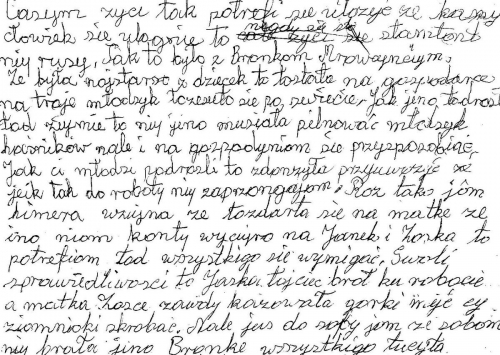 Casym życi tak potrafi sie ułozyć ze kazdy
człowiek sie ylągnie to nigdy sie stamtont
niy rusy. Tak to było z Bronkom Mrowcynym.
Ze była nojstarso z dziecek to ostała na gospodarce
na troje młodsyk łozesuło sie po świecie. Jak jino
tad zyjnie to niy jino musiała pilnować młodsyk
harników nale i na gospodyniom sie przysposobiać.
Jak ci młodsi podrośli to zdonzyła przywiedzić ze
jejik tak do roboty niy zaprzongajom. Roz tako jóm
himera wziyna ze łozdarła sie na matke ze
ino niom konty wyciyro na Janek i Zoska to
potrafiom łod wszystkigo sie wymigać. Swoli
sprawiedliwości to Jaśka łojciec broł ku robocie
a matka Zosce zawdy kazowała gorki myć cy
ziomnioki skrobać. Nale jus do soby jom ze sobom
niy brała jino Bronke wszystkigo ucyła.